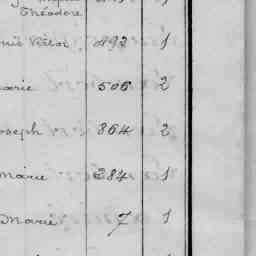 Théodore
Victor 492 1
arie 506 2
oseph 864 2
marie 384 1
Marie 7 1